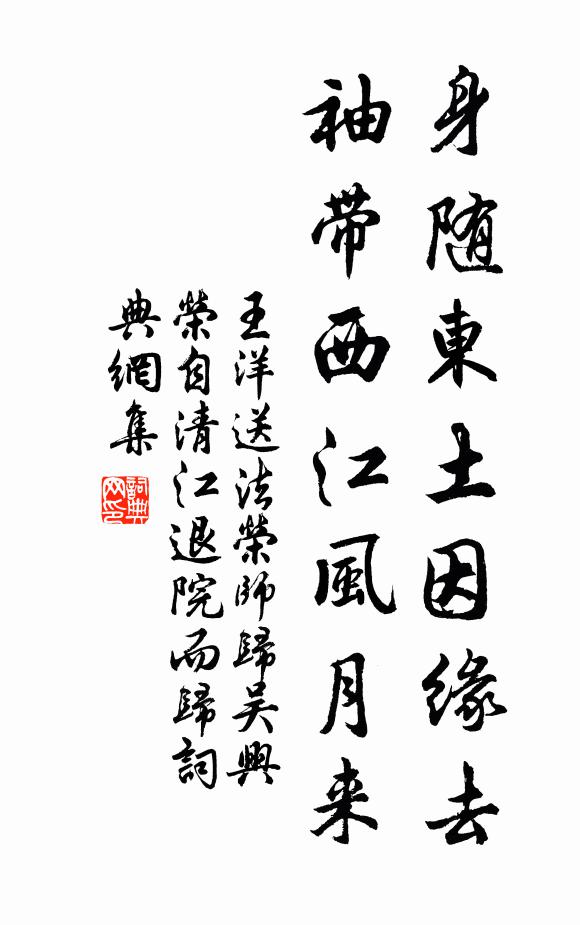 身随東土因緣去
袖帶西江風月来
王洋送法榮師歸吴興
榮自清江退院而歸詞
典網集
詞典
网印